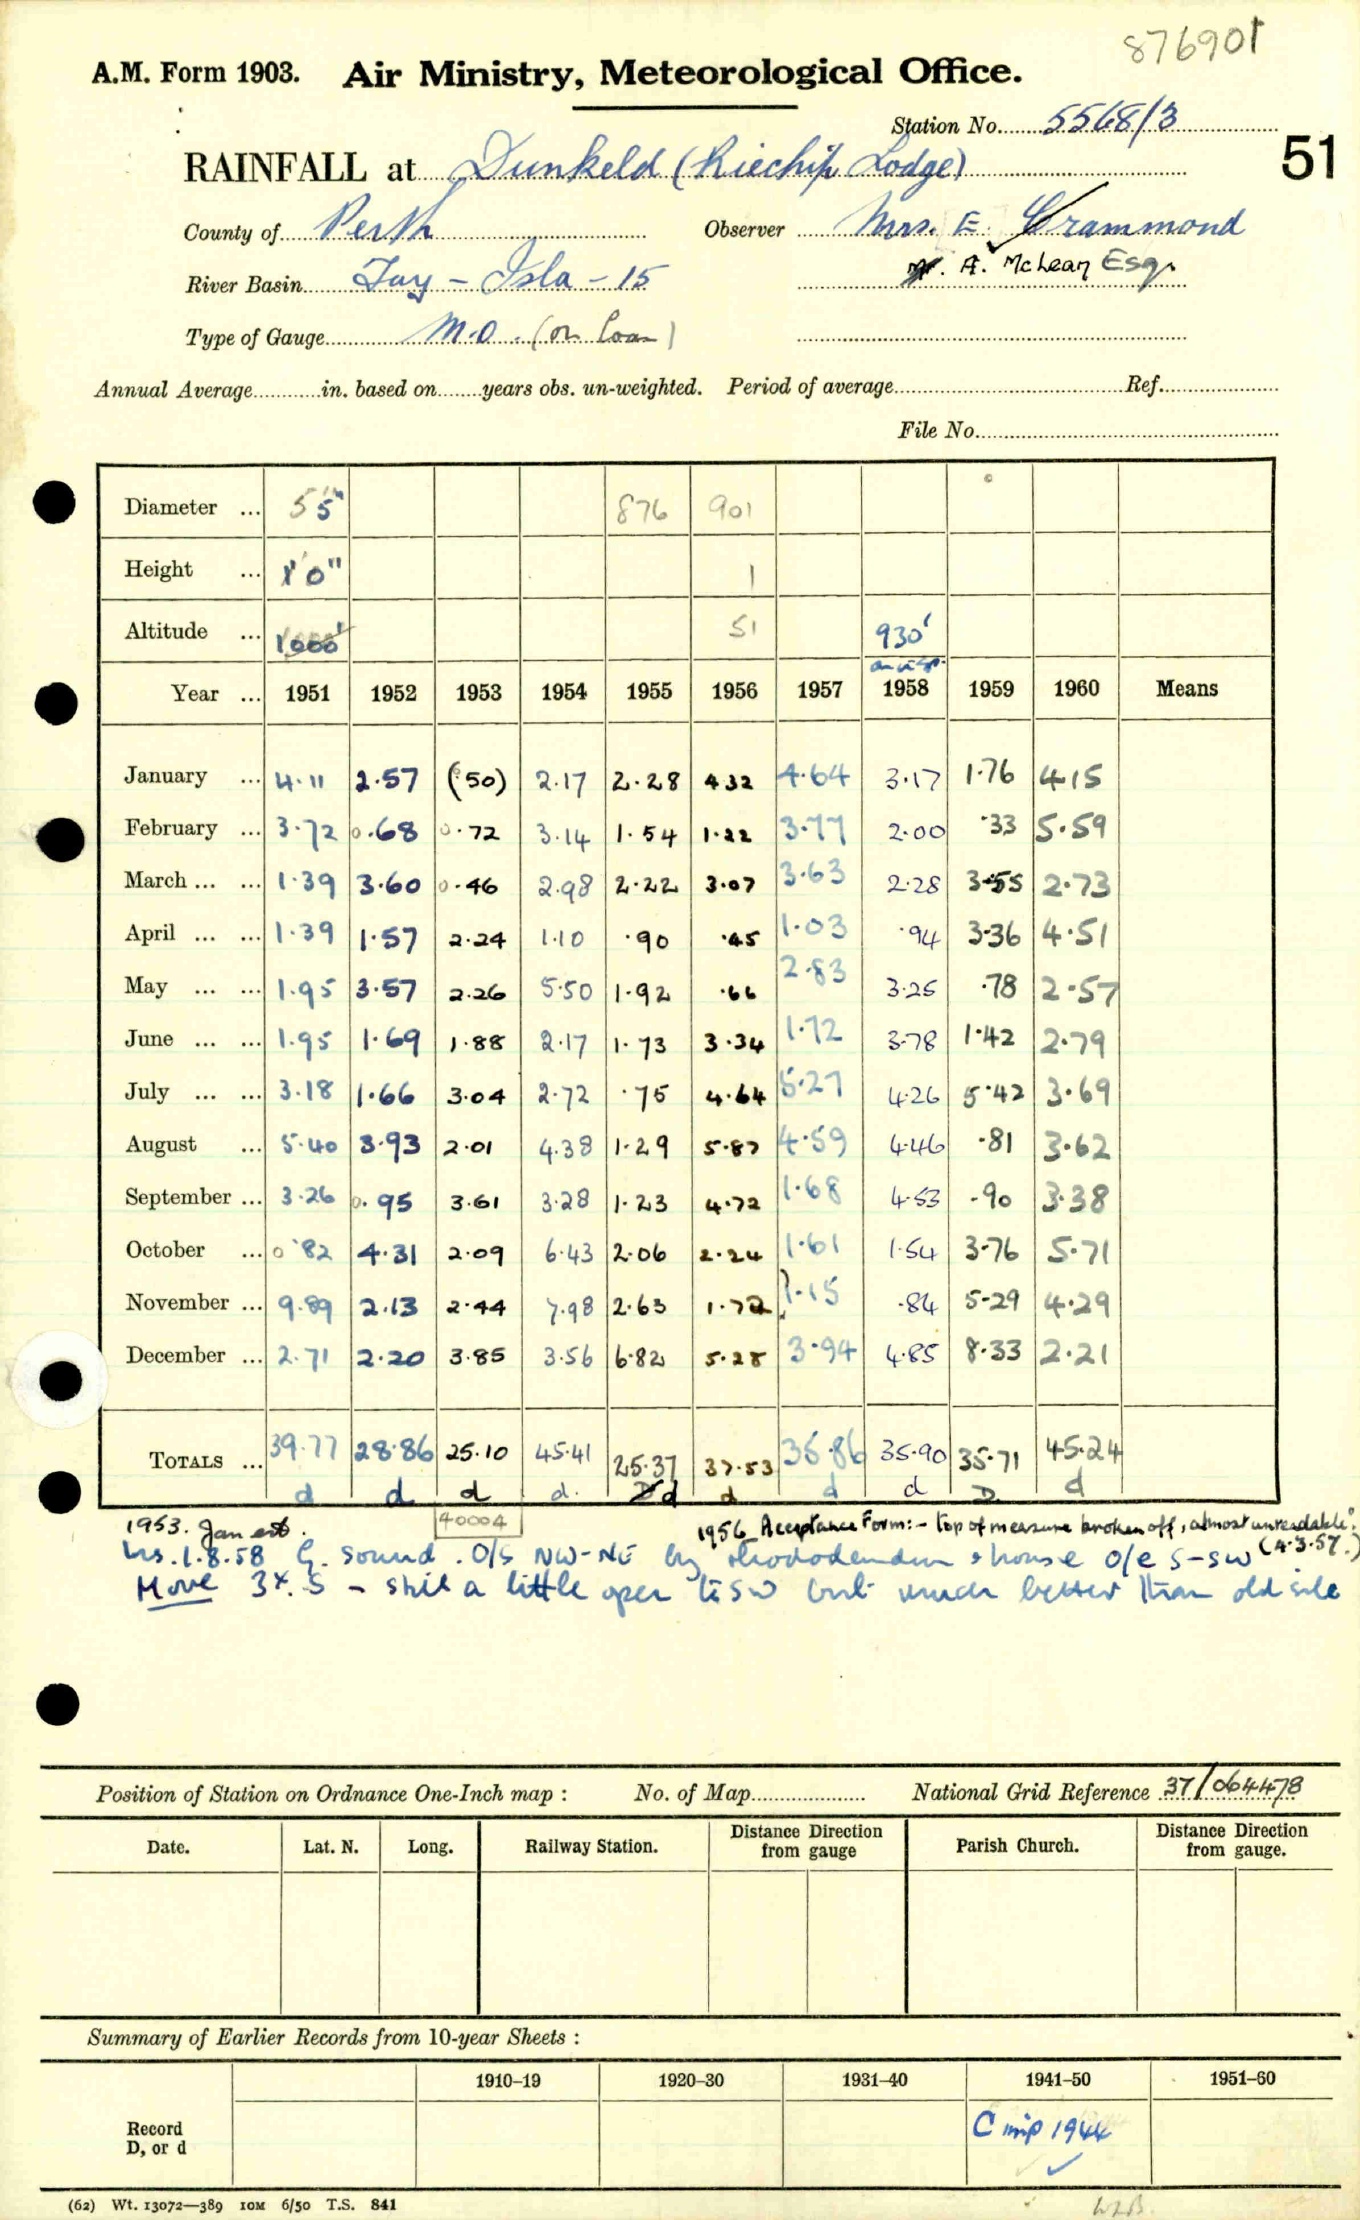 876901
A.M. Form 1903. Air Ministry, Meteorological Office.
Station No. 5568/3
51
RAINFALL at Dunkeld (Riechip Lodge)
County of Perth Observer Mrs. E. Crammond
A. McLean Esq.
River Basin Tay - Isla - 15
Type of Gauge M.O. (on loan)
Annual Average in. based on years obs. un-weighted. Period of average Ref.
File No.
Diameter ... 5" 876 901
Height ... 1'0" 1
Altitude ... 1000' 51 930'
Year ... 1951 1952 1953 1954 1955 1956 1957 1958 1959 1960 Means
January ... 4.11 2.57 (.50) 2.17 2.28 4.32 4.64 3.17 1.76 4.15
February ... 3.72 0.68 0.72 3.14 1.54 1.22 3.77 2.00 .33 5.59
March ... ... 1.39 3.60 0.46 2.98 2.22 3.07 3.63 2.28 3.55 2.73
April ... ... 1.39 1.57 2.24 1.10 .90 .45 1.03 .94 3.36 4.51
May ... ... 1.95 3.57 2.26 5.50 1.92 .66 2.83 3.25 .78 2.57
June ... ... 1.95 1.69 1.88 2.17 1.73 3.34 1.72 3.78 1.42 2.79
July ... ... 3.18 1.66 3.04 2.72 .75 4.64 5.27 4.26 5.42 3.69
August ... 5.40 3.93 2.01 4.38 1.29 5.87 4.59 4.46 .81 3.62
September ... 3.26 0.95 3.61 3.28 1.23 4.72 1.68 4.53 .90 3.38
October ... 0.82 4.31 2.09 6.43 2.06 2.24 1.61 1.54 3.76 5.71
November ... 9.89 2.13 2.44 7.98 2.63 1.72 1.15 .84 5.29 4.29
December ... 2.71 2.20 3.85 3.56 6.82 5.28 3.94 4.85 8.33 2.21
TOTALS ... 39.77 28.86 25.10 45.41 25.37 37.53 35.86 35.90 35.71 45.24
d d d d. d d d d D d
40004
1953. Jan est. 1956 Acceptance Form:- "top of measure broken off, almost unreadable".
(4.3.57.)
Ins. 1.8.58 G. Sound. O/S NW-NE by rhododendron & house O/E S-SW
Move 3x. S - still a little open to SW but much better than old site
Position of Station on Ordnance One-Inch map : No. of Map National Grid Reference 37/064478
Date. Lat. N. Long. Railway Station. Distance Direction from gauge Parish Church. Distance Direction from gauge.
Summary of Earlier Records from 10-year Sheets :
1910-19 1920-30 1931-40 1941-50 1951-60
Record
D, or d
C mip 1944
(62) Wt. 13072—389 10M 6/50 T.S. 841